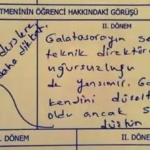 TMENİNİN ÖĞRENCİ HAKKINDAKİ GÖRÜŞÜ
II. DÖNEM
derslere
daha dikkat
Galatasarayın se
teknik direktörü
uğursuzluğu
de yansımış. Ga
kendini düzelt
oldu ancak s
düşkün
II. DÖNEM
II. D